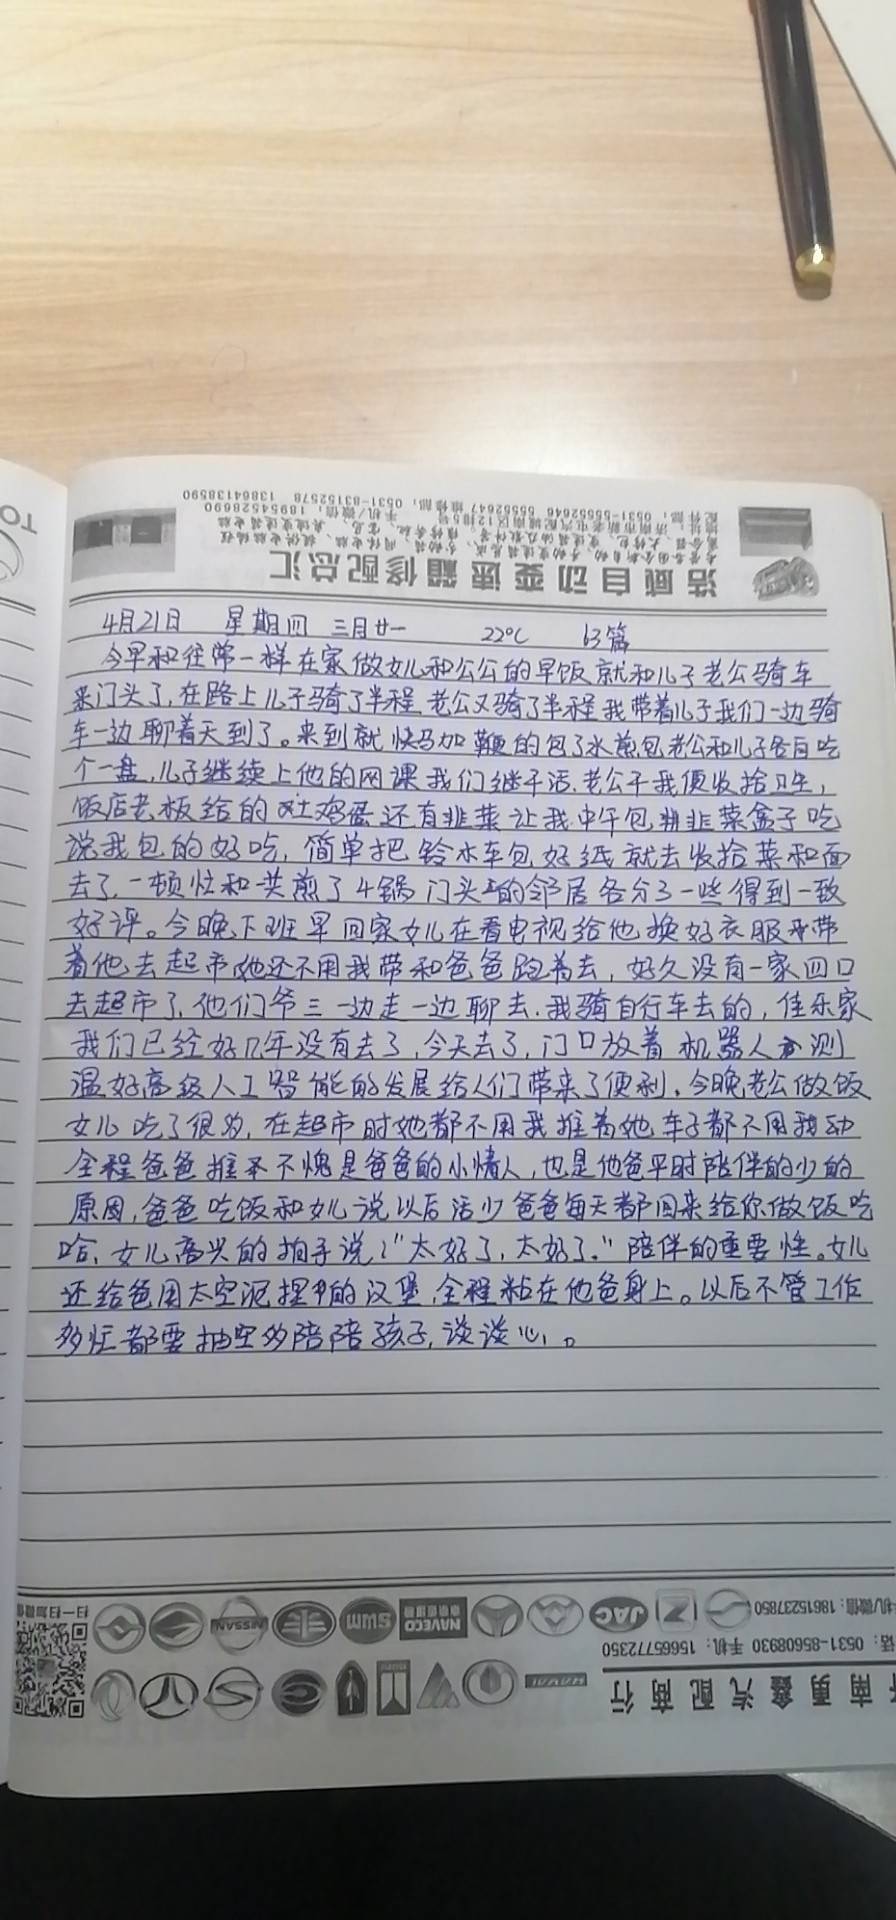 浩威自动变速箱修配总汇
4月21日 星期四 三月廿一 22℃ 63篇
今早和往常一样在家做女儿和公公的早饭就和儿子老公骑车
来门头了,在路上儿子骑了半程老公又骑了半程我带着儿子我们一边骑
车一边聊着天到了。来到就快马加鞭的包了水煎包老公和儿子各自吃
个一盘,儿子继续上他的网课我们继干活.老公干我便收拾卫生,
饭店老板给的土鸡蛋还有韭菜让我中午包韭菜盒子吃
说我包的好吃,简单把铃木车包好纸就去收拾菜和面
去了.一顿忙和共煎了4锅门头的邻居各分了一些得到一致
好评。今晚下班早回家女儿在看电视给他换好衣服带
着他去超市她还不用我带和爸爸跑着去,好久没有一家四口
去超市了,他们爷三一边走一边聊去.我骑自行车去的,佳乐家
我们已经好几年没有去了,今天去了,门口放着机器人测
温好高级人工智能的发展给人们带来了便利.今晚老公做饭
女儿吃了很多,在超市时她都不用我推着她车子都不用我动
全程爸爸推不愧是爸爸的小情人,也是他爸平时陪伴的少的
原因,爸爸吃饭和女儿说以后活少爸爸每天都回来给你做饭吃
哈,女儿高兴的拍手说:"太好了,太好了."陪伴的重要性。女儿
还给爸用太空泥捏的汉堡,全程粘在他爸身上。以后不管工作
多忙都要抽空多陪陪孩子,谈谈心。
扫一扫加微信
NISSAN SWM NAVECO JAC
机/微信:18615237850
话:0531-85608930 手机:15665772350
南勇鑫汽配商行